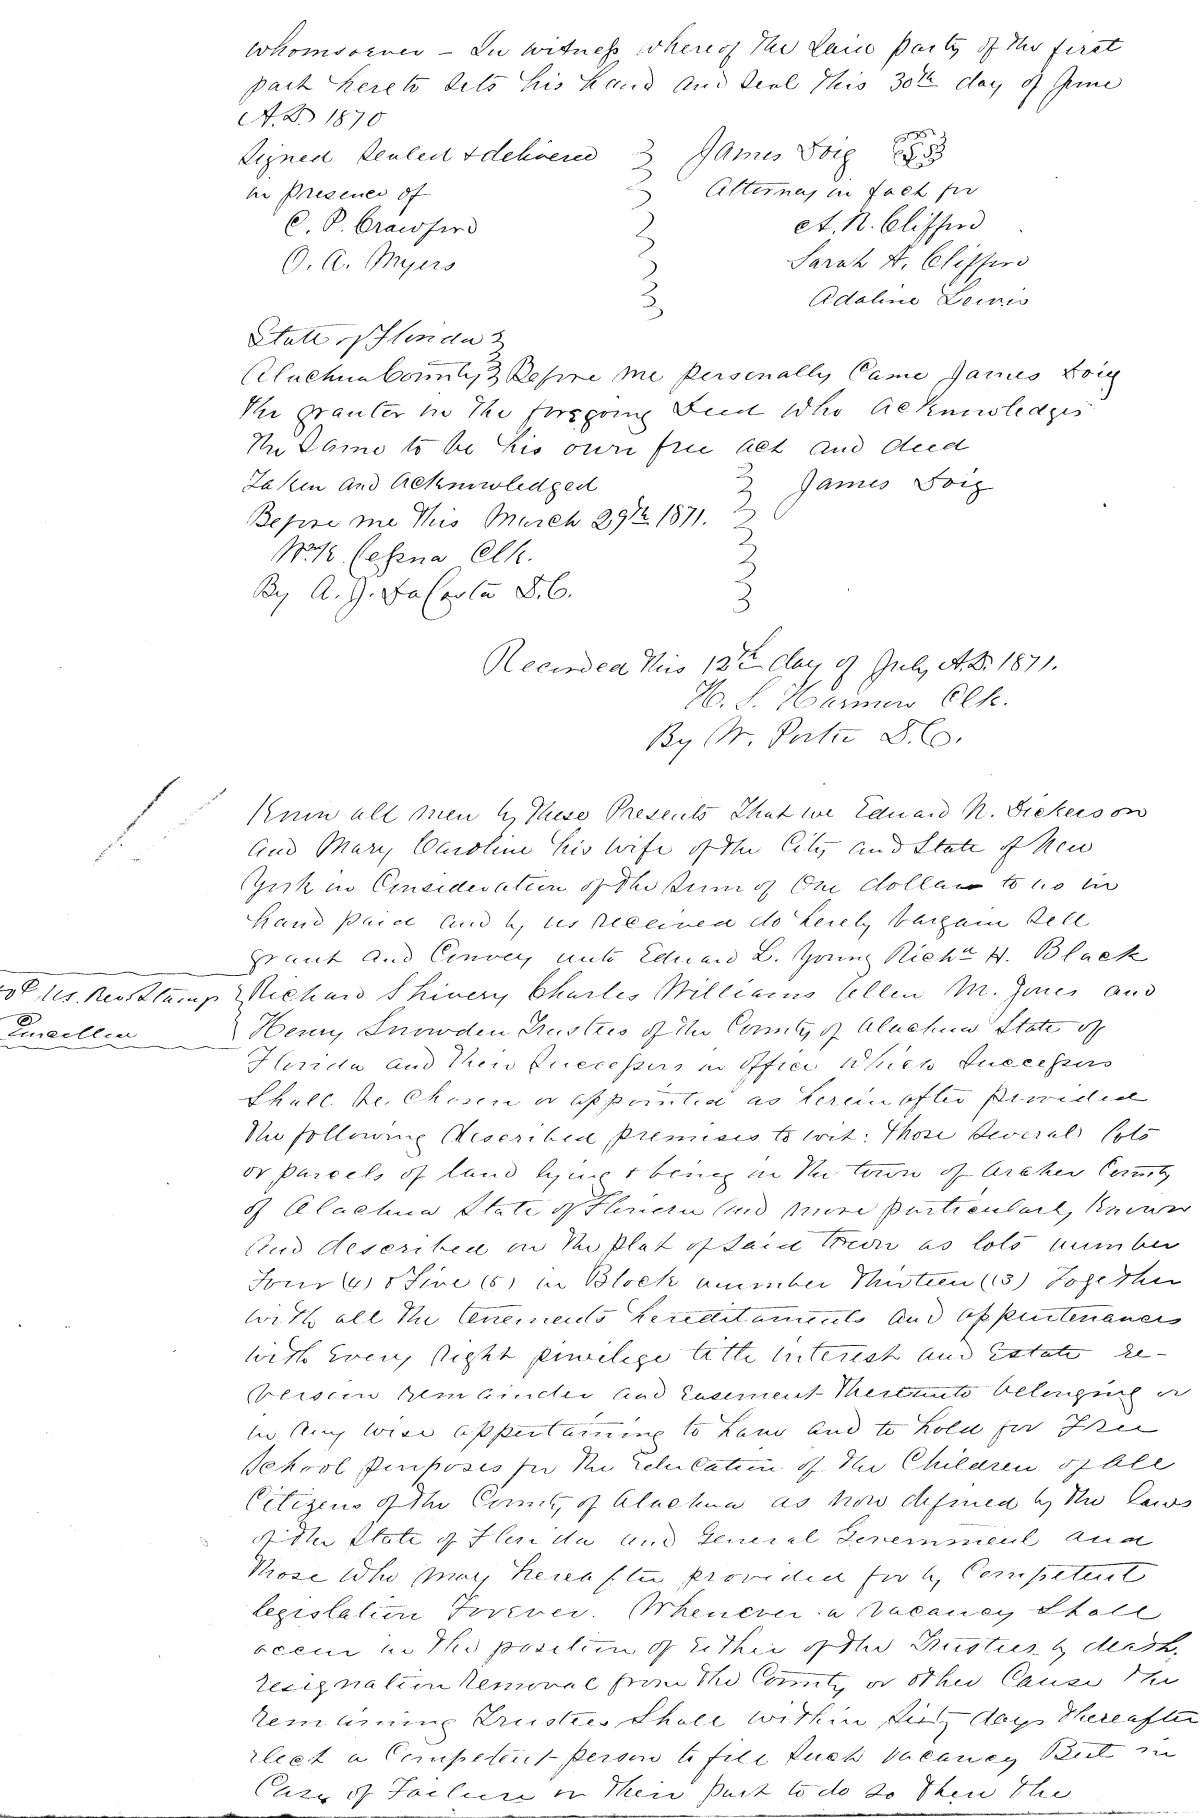 whomsoever – In witness whereof the Said party of the first
part hereto sets his hand and seal this 30th day of June
A.D. 1870
Signed Sealed & delivered
in presence of
C. P. Crawford
O. A. Myers
James Doig
Attorney in fact for
A. N. Clifford
Sarah A. Clifford
Adaline Lewis
State of Florida
Alachua County Before me personally Came James Doig
the granter in the foregoing Deed who acknowledges
the Same to be his own free act and deed
Taken and acknowledged
Before me this March 29th 1871.
Wm K. Cessna Clk.
By A. J. DaCosta D.C.
James Doig
Recorded this 12th day of July A.D. 1871.
H. S. Harmon Clk.
By W. Porter D.C.
Know all men by these Presents That we Edward N. Dickerson
and Mary Caroline his wife of the City and State of New
York in Consideration of the sum of One dollar to us in
hand paid and by us received do hereby bargain sell
grant and Convey unto Edward L. Young Richd H. Black
Richard Shivery Charles Williams Allen M. Jones and
Henry Snowden Trustees of the County of Alachua State of
Florida and their Successors in office which Successors
Shall be chosen or appointed as herein after provided
the following described premises to wit: those several lots
or parcels of land lying & being in the town of Archer County
of Alachua State of Florida and more particularly known
and described on the plat of said town as lots number
Four (4) & Five (5) in Block number Thirteen (13) Together
with all the tenements hereditaments and appurtenances
with Every right privilege title interest and Estate re-
version remainder and easement thereunto belonging or
in any wise appertaining to have and to hold for Free
School purposes for the Education of the Children of all
Citizens of the County of Alachua as now defined by the laws
of the State of Florida and General Government and
those who may hereafter provided for by Competent
legislation forever. Whenever a vacancy Shall
occur in the position of Either of the Trustees by death,
resignation removal from the County or other Cause the
remaining Trustees Shall within Sixty days thereafter
elect a Competent person to fill such vacancy But in
Case of Failure on their part to do so then the
U.S. Rev Stamp
Cancelled